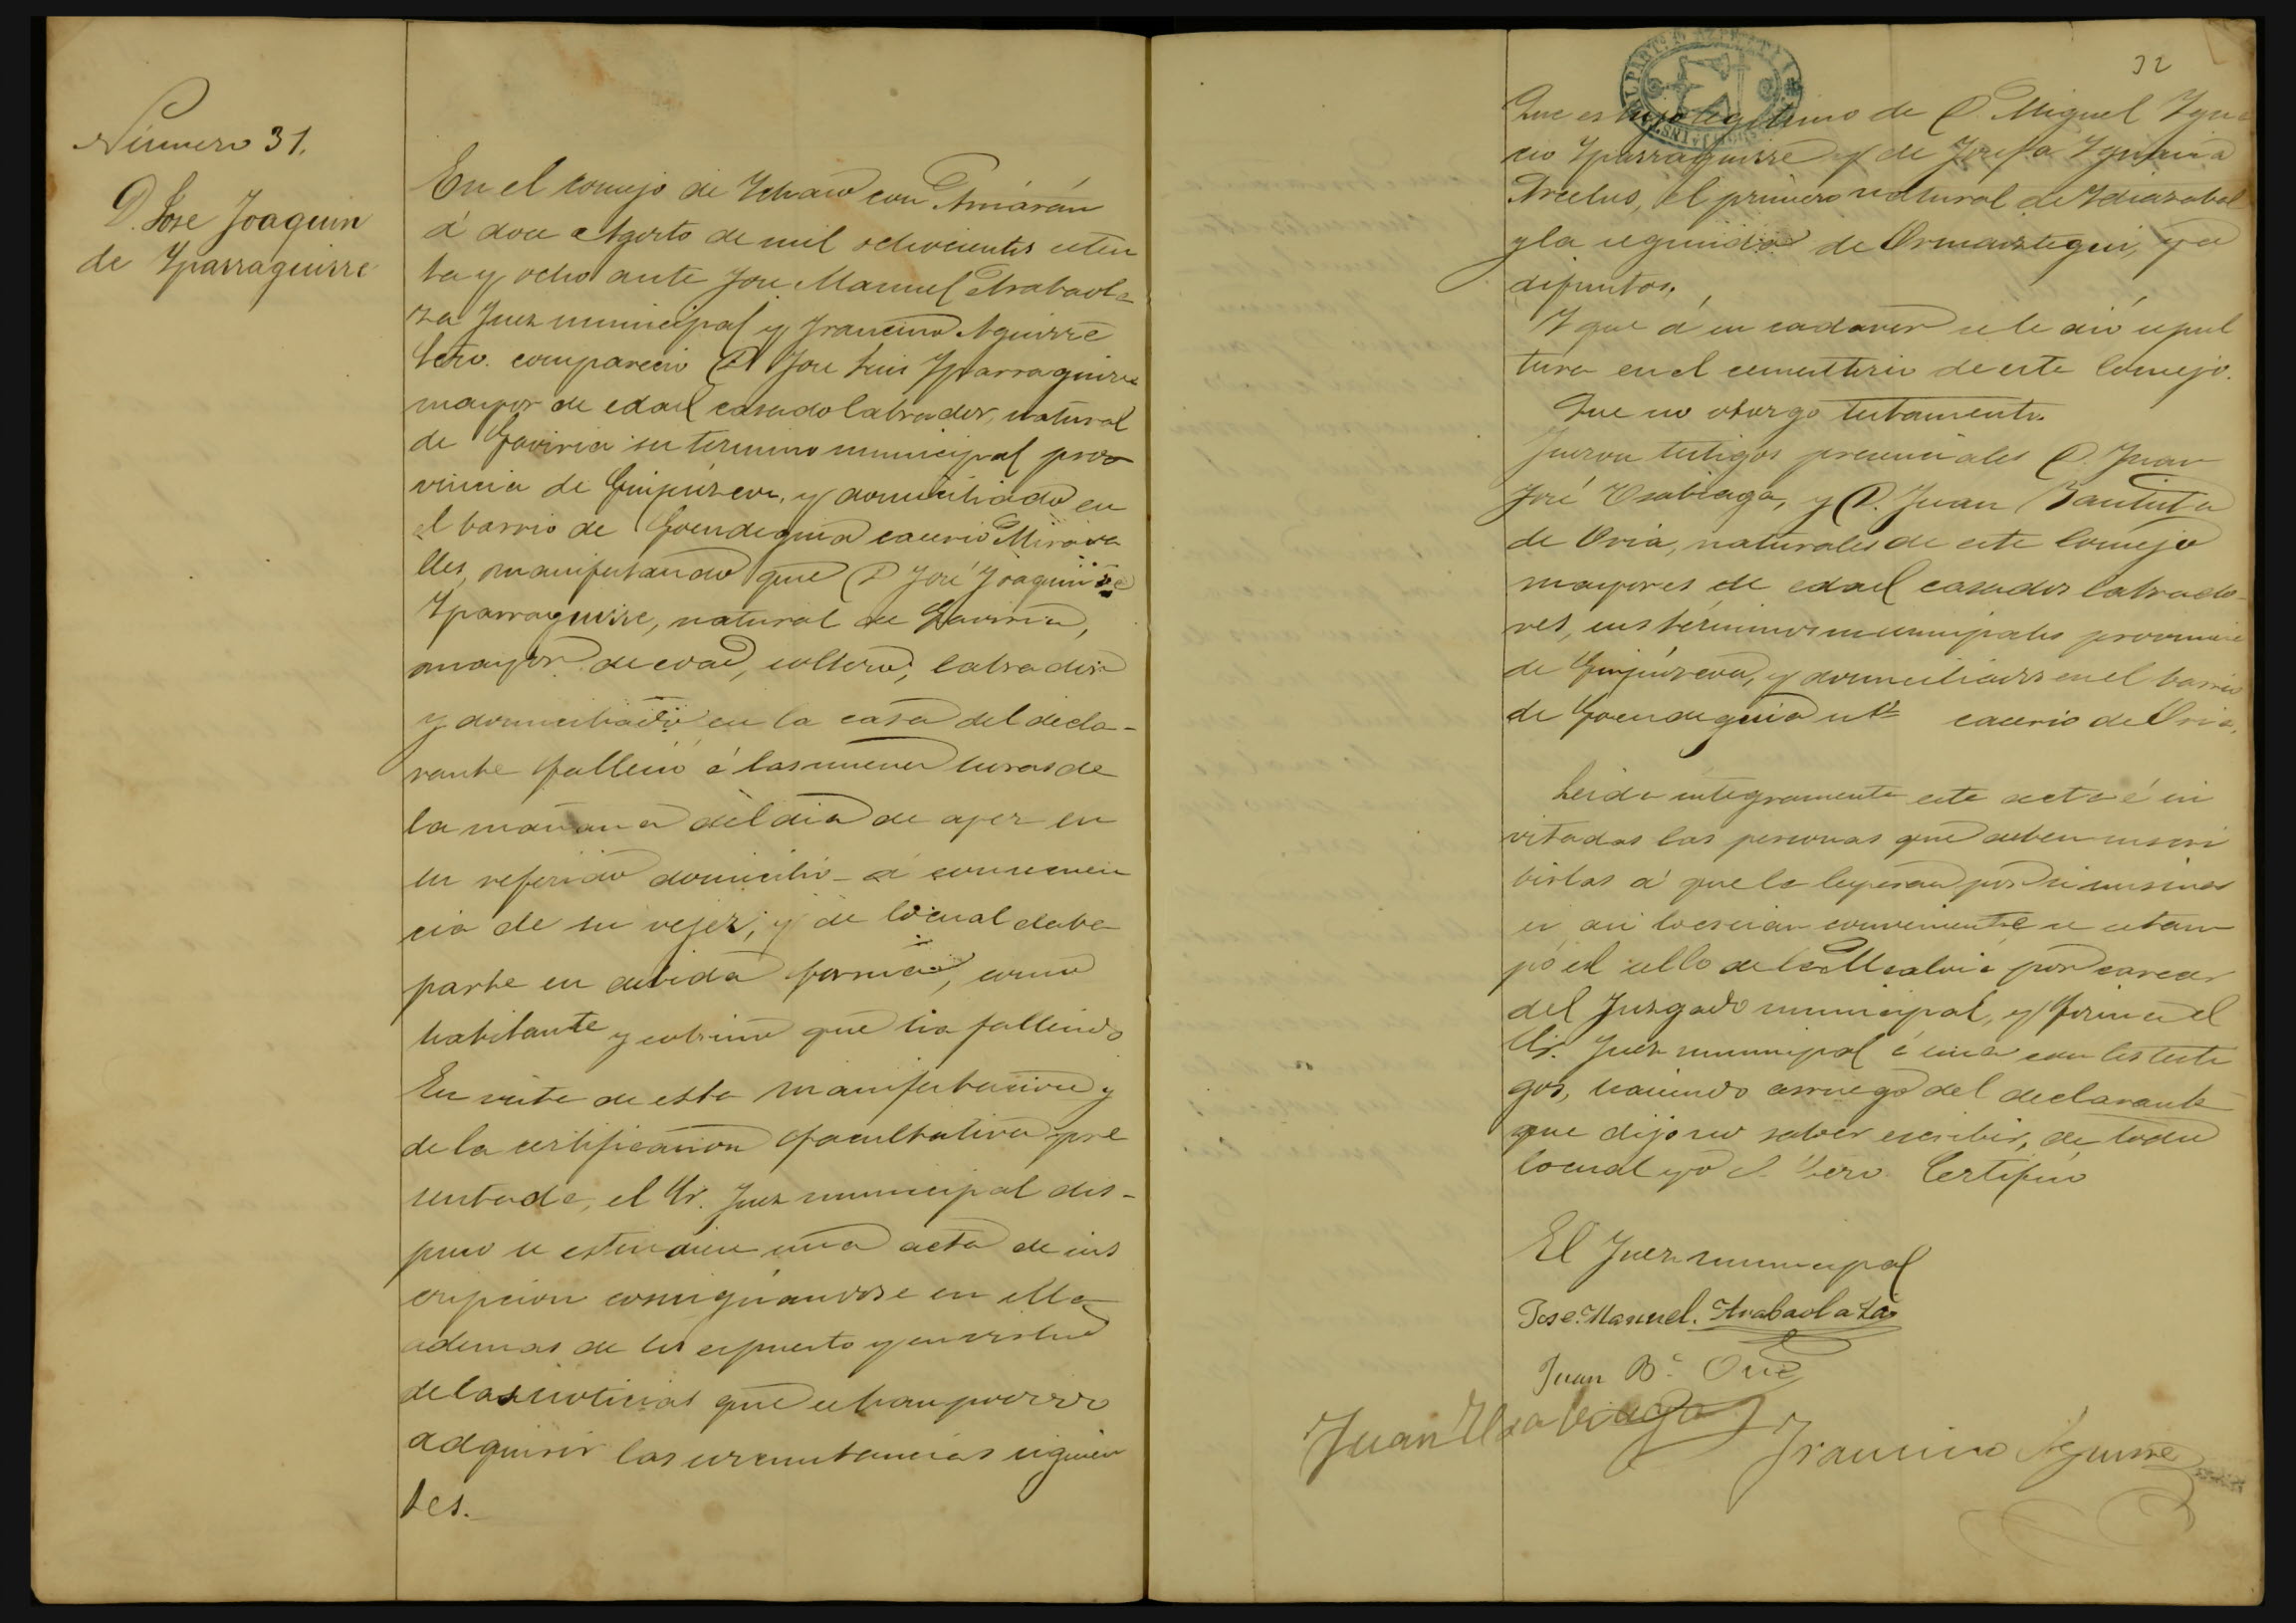 Número 31.
D. Jose Joaquin
de Yparraguirre
En el concejo de Ichaso con Arriarán
á doce Agosto de mil ochocientos seten
ta y ocho ante Jose Manuel Arabaola
za Juez municipal y Francisco Aguirre
Srio. comparecio D. Jose Luis Yparraguirre
mayor de edad casado labrador, natural
de Gaviria su termino municipal pro
vincia de Guipúzcoa, y domiciliado en
el barrio de Goendeguia caserio Mirava
lles, manifestando que D José Joaquin de
Yparraguirre, natural de Gaviria,
mayor de edad, soltero, labrador
y domiciliado en la casa del decla-
rante falleció á las nueve horas de
la mañana del dia de ayer en
su referido domicilio á consecuen
cia de su vejez, y de lo cual daba
parte en debida forma, como
habitante y sobrino que ha fallecido
En vista de esta manifestacion y
de la certificacion facultativa pre
sentada, el Sr. Juez municipal dis-
puso se estendiese una acta de ins
cripcion consignandose en ella
ademas de lo espuesto y en virtud
de las noticias que se han podido
adquirir las circunstancias siguien
tes.
32
Que es hijo legitimo de D. Miguel Ygna
cio Yparraguirre y de Josefa Ygnacia
Arcelus, el primero natural de Ydiazabal
y la segunda de Ormaiztegui, ya
difuntos.
Y que á su cadaver se le dió sepul
tura en el cementerio de este Concejo.
Que no otorgo testamento.
Fueron testigos presenciales D. Juan
José Usabiaga, y D. Juan Bautista
de Oria, naturales de este Concejo
mayores de edad casados labrado-
res, sus términos municipales provincia
de Guipúzcoa, y domiciliados en el barrio
de Goendeguia caserio de Oria.
Leida integramente este acta é in
vitadas las personas que deben suscri
birlas á que la leyeran por si mismas
si asi lo creian conveniente se estam
pó el sello de la Alcaldia por carecer
del Juzgado municipal, y firma el
Sr. Juez municipal é una con los testi
gos, haciendo arruego del declarante
que dijo no saber escribir, de todo
lo cual yo el Srio. Certifico
El Juez municipal
Jose Manuel. Arabaolaza
Juan B.ª Oria
Juan Usabiaga
Francisco Aguirre